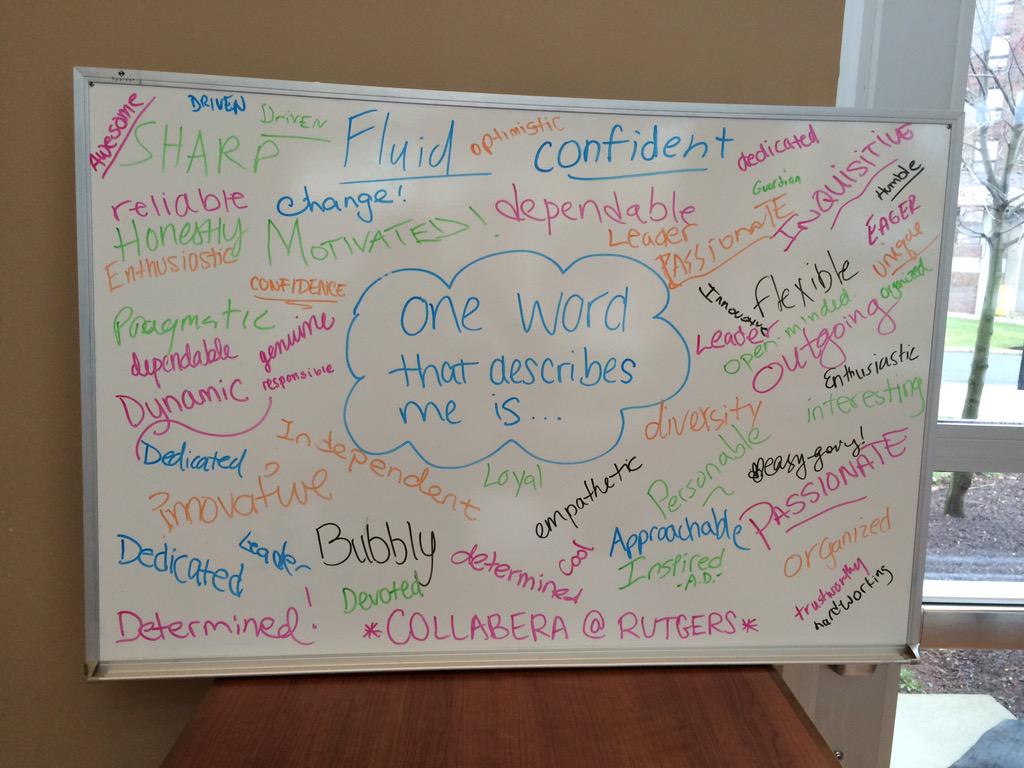 Awesome
DRIVEN
DRIVEN
SHARP
Fluid
optimistic
confident
dedicated
INQUISITIVE
Humble
reliable
change!
dependable
Guardian
EAGER
Honestly
MOTIVATED!
Leader
PASSIONATE
unique
Enthusiastic
CONFIDENCE
flexible
organized
Pragmatic
genuine
Leader
open-minded
outgoing
dependable
responsible
one word
that describes
me is...
Enthusiastic
Dynamic
interesting
Independent
diversity
Dedicated
Loyal
empathetic
Personable
easy-going!
PASSIONATE
innovative
Dedicated
Leader
Bubbly
determined
cool
Approachable
organized
Inspired
-A.D.-
Devoted
trustworthy
hardworking
Determined!
*COLLABERA @ RUTGERS*